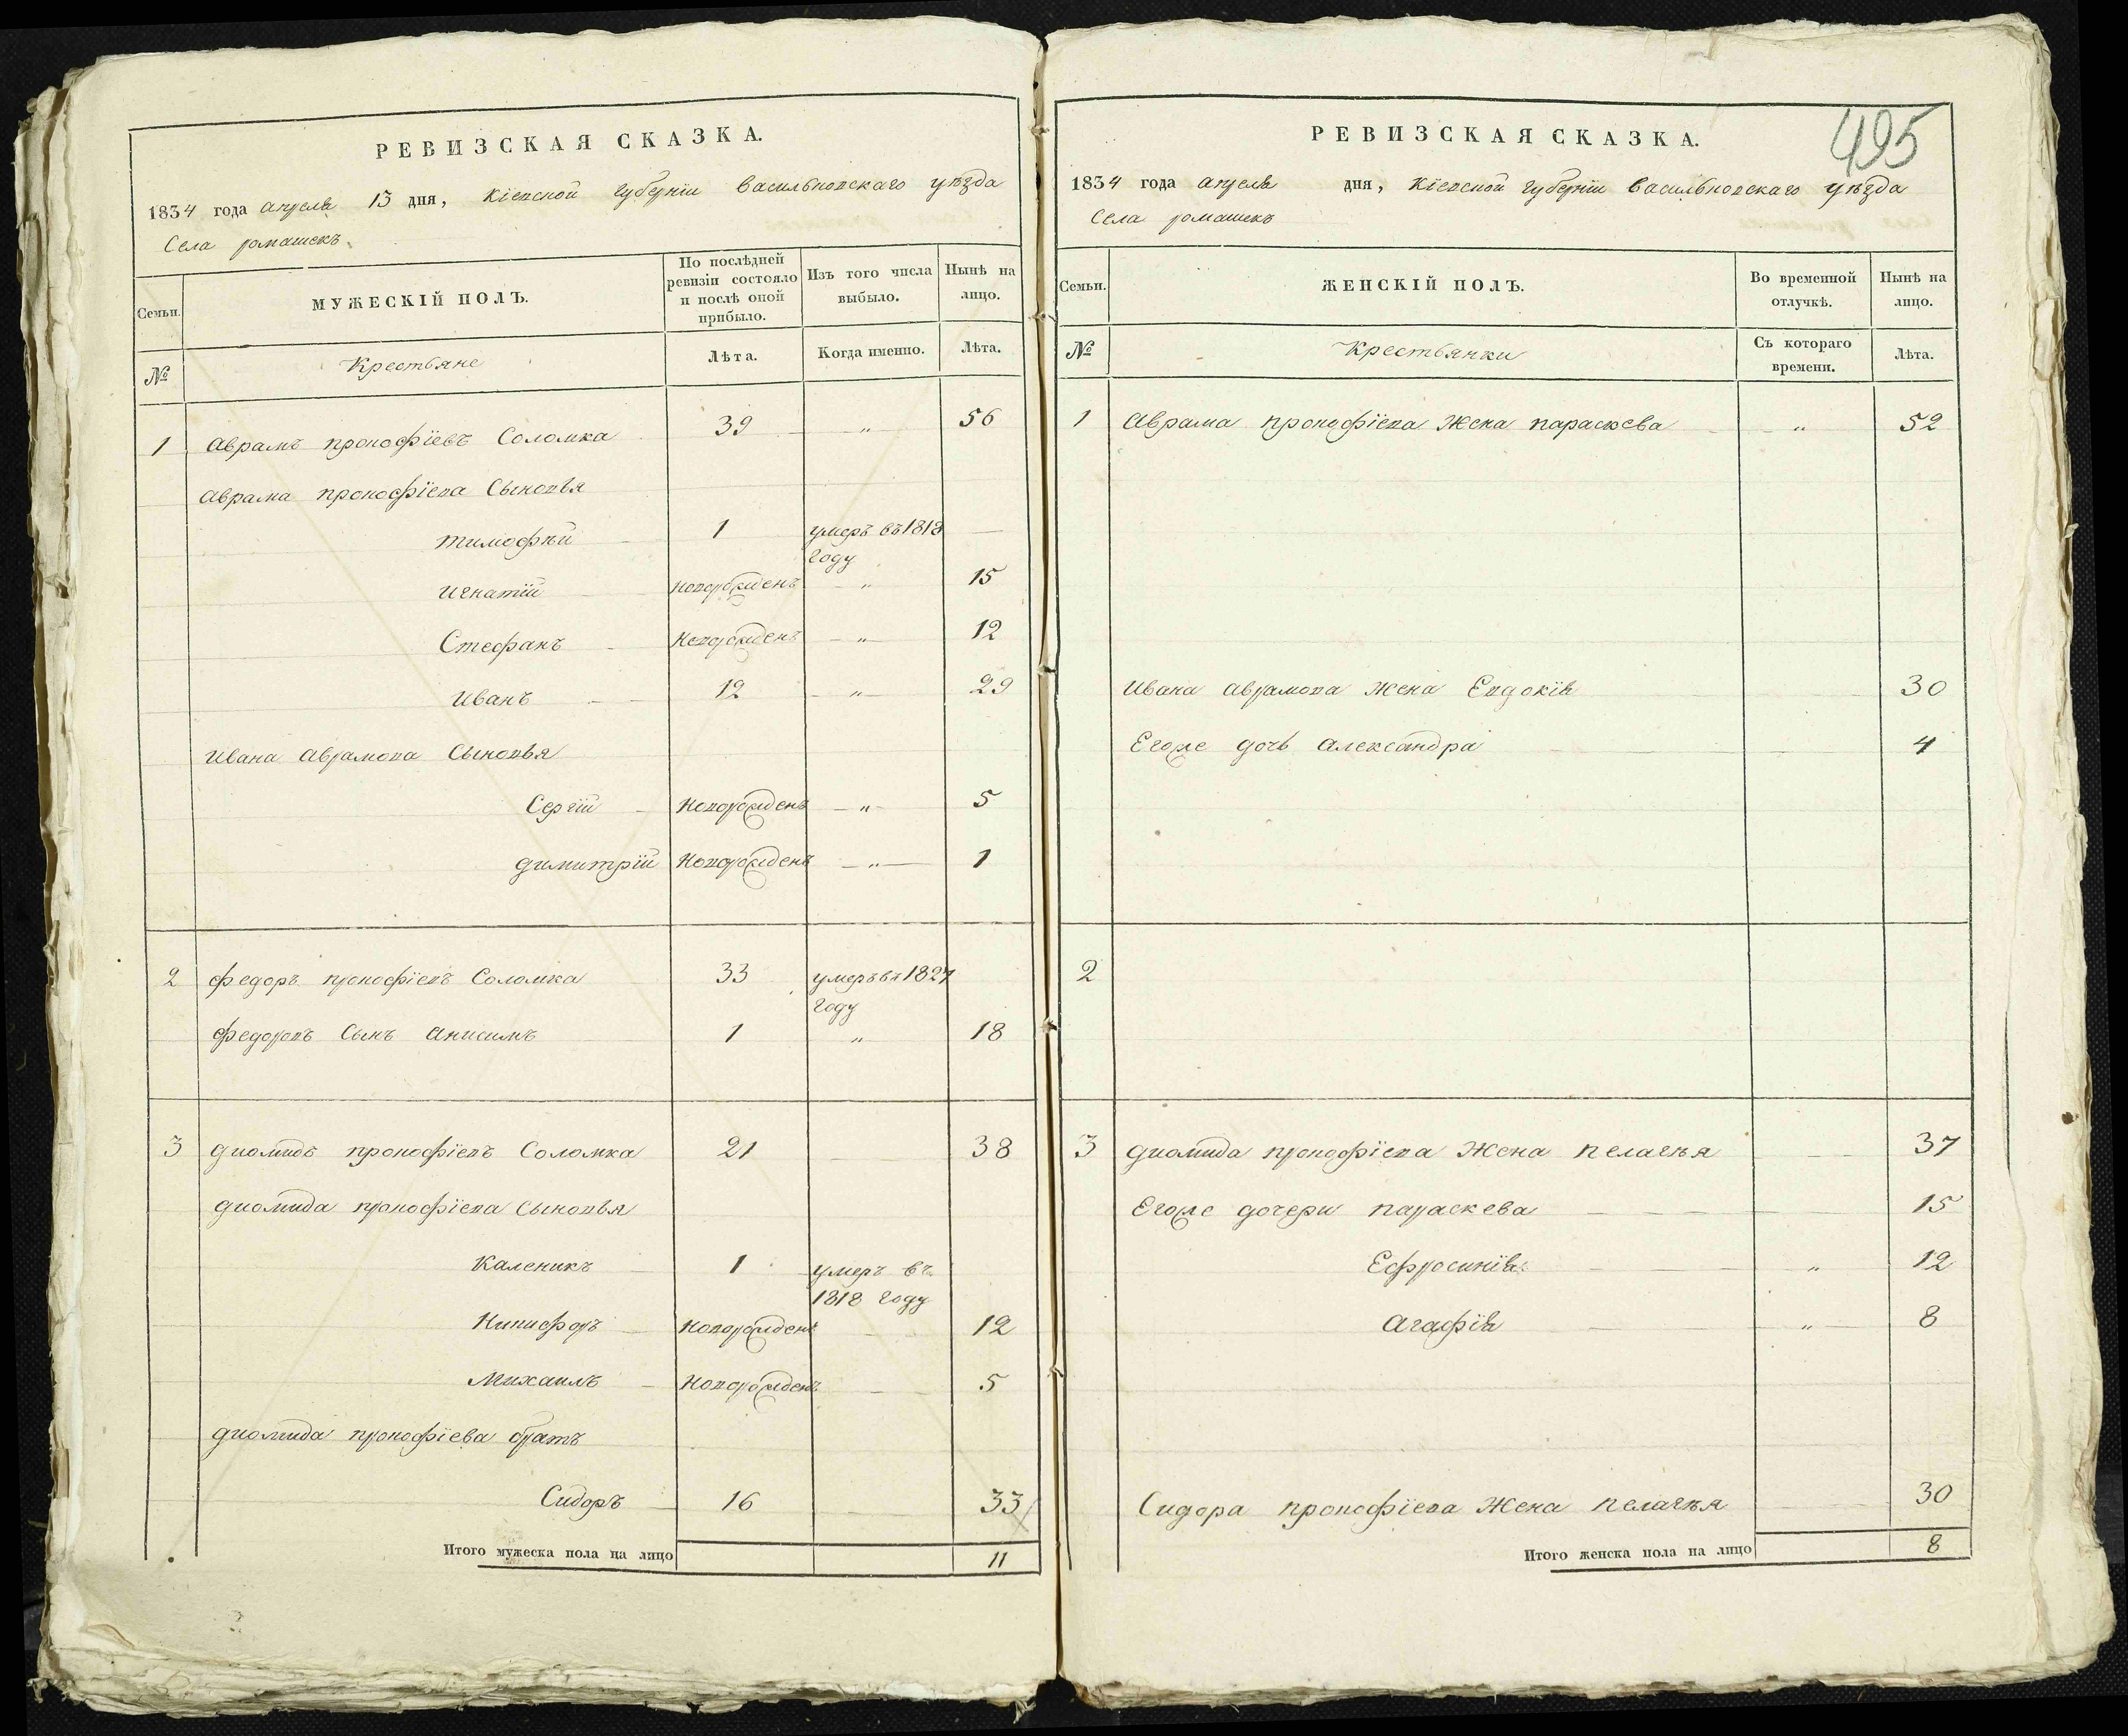 РЕВИЗСКАЯ СКАЗКА.
1834 года апреля 13 дня, Кіевской губерніи Васильковскаго уѣзда
Села ромашекъ
Семьи.
МУЖЕСКІЙ ПОЛЪ.
По послѣдней ревизіи состояло и послѣ оной прибыло.
Изъ того числа выбыло.
Нынѣ на лицо.
№ Крестьяне Лѣта. Когда именно. Лѣта.
1 Аврамъ прокофіевъ Соломка 39 „ 56
Аврама прокофіева Сыновья
тимофѣй 1 умеръ въ 1818 году —
игнатій новорожденъ „ 15
Стефанъ новорожденъ „ 12
иванъ 12 „ 29
ивана аврамова Сыновья
Сергій новорожденъ „ 5
димитрій новорожденъ „ 1
2 федоръ прокофіевъ Соломка 33 умеръ въ 1827 году
федоровъ Сынъ анисимъ 1 „ 18
3 диомидъ прокофіевъ Соломка 21 — 38
диомида прокофіева Сыновья
Каленикъ 1 умеръ въ 1818 году
Никифоръ новорожденъ — 12
Михаилъ новорожденъ — 5
диомида прокофіева братъ
Сидоръ 16 — 33
Итого мужеска пола на лицо 11
495
РЕВИЗСКАЯ СКАЗКА.
1834 года апреля дня, Кіевской губерніи Васильковскаго уѣзда
Села ромашекъ
Семьи.
ЖЕНСКІЙ ПОЛЪ.
Во временной отлучкѣ.
Нынѣ на лицо.
№ Крестьянки Съ котораго времени. Лѣта.
1 Аврама прокофіева Жена параскева „ 52
ивана аврамова жена Евдокія 30
Егоже дочь александра 4
2
3 диомида прокофіева Жена пелагѣя — 37
Егоже дочери параскева 15
Ефросинія „ 12
агафія „ 8
Сидора прокофіева Жена пелагѣя 30
Итого женска пола на лицо 8